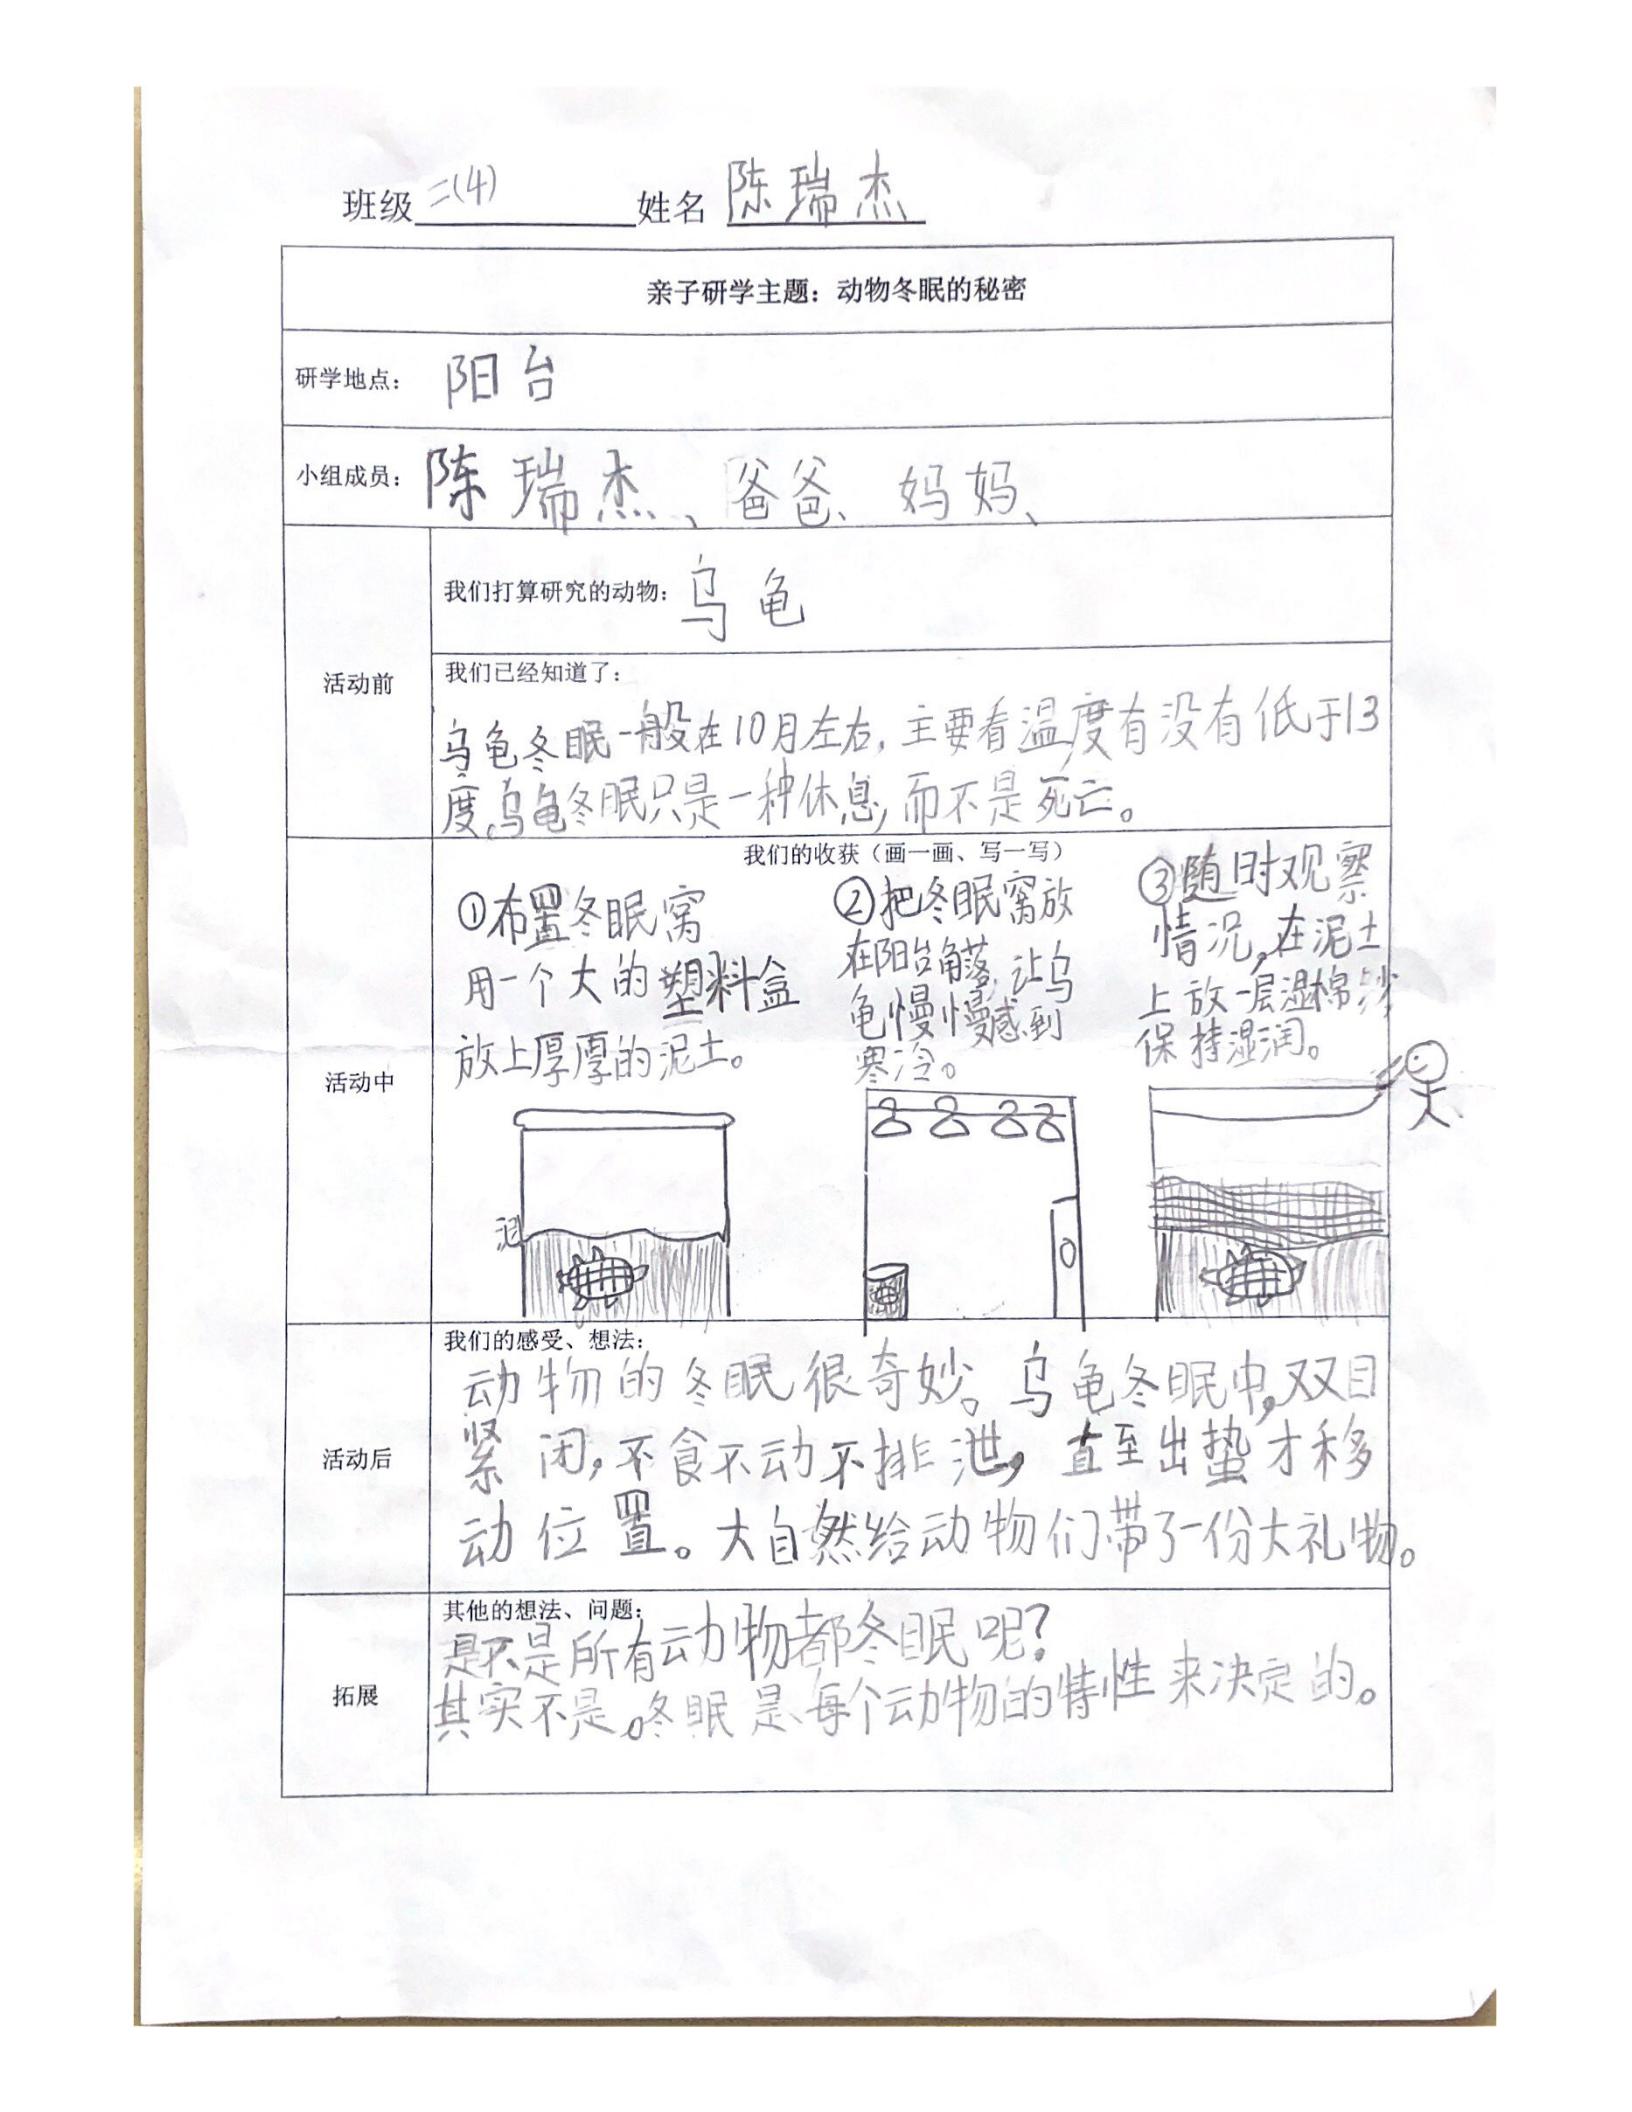 班级 二(4) 姓名 陈瑞杰
亲子研学主题：动物冬眠的秘密
研学地点： 阳台
小组成员： 陈瑞杰、爸爸、妈妈、
活动前
我们打算研究的动物： 乌龟
我们已经知道了：
乌龟冬眠一般在10月左右，主要看温度有没有低于13
度。乌龟冬眠只是一种休息，而不是死亡。
活动中
我们的收获（画一画、写一写）
①布置冬眠窝
用一个大的塑料盒
放上厚厚的泥土。
②把冬眠窝放
在阳台角落，让乌
龟慢慢感到
寒冷。
③随时观察
情况，在泥土
上放一层湿棉沙
保持湿润。
泥
活动后
我们的感受、想法：
动物的冬眠很奇妙。乌龟冬眠中，双目
紧闭，不食不动不排泄，直至出蛰才移
动位置。大自然给动物们带了一份大礼物。
拓展
其他的想法、问题：
是不是所有动物都冬眠呢？
其实不是。冬眠是每个动物的特性来决定的。